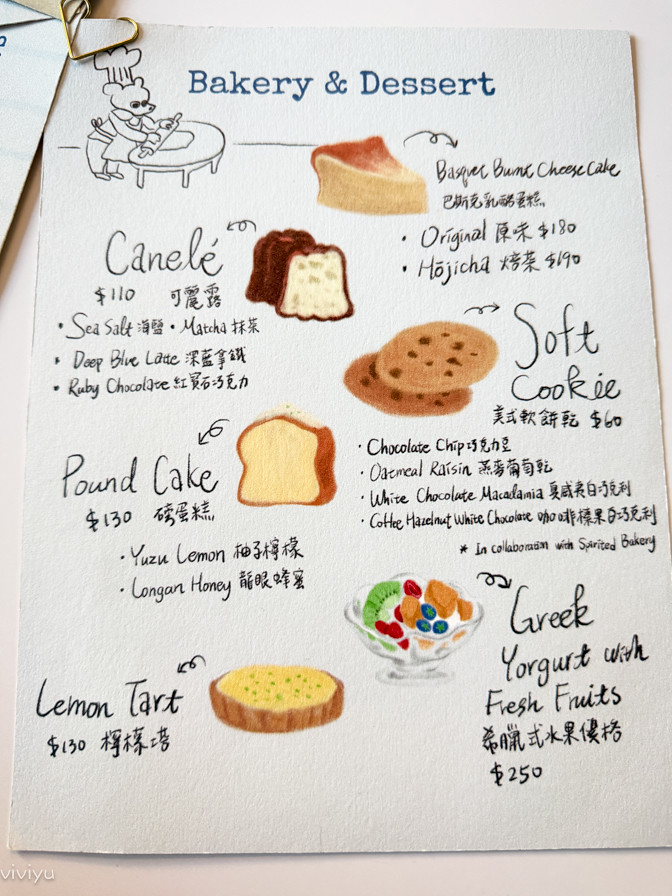 Bakery & Dessert
Basque Burnt Cheese Cake
巴斯克乳酪蛋糕
• Original 原味 $180
• Hōjicha 焙茶 $190
Canelé
$110 可麗露
• Sea Salt 海鹽 • Matcha 抹茶
• Deep Blue Latte 深藍拿鐵
• Ruby Chocolate 紅寶石巧克力
Soft
Cookie
美式軟餅乾 $60
• Chocolate Chip 巧克力豆
• Oatmeal Raisin 燕麥葡萄乾
• White Chocolate Macadamia 夏威夷白巧克利
• Coffee Hazelnut White Chocolate 咖啡榛果白巧克利
* In collaboration with Spirited Bakery
Pound Cake
$130 磅蛋糕
• Yuzu Lemon 柚子檸檬
• Longan Honey 龍眼蜂蜜
Greek
Yorgurt with
Fresh Fruits
希臘式水果優格
$250
Lemon Tart
$130 檸檬塔
viviyu